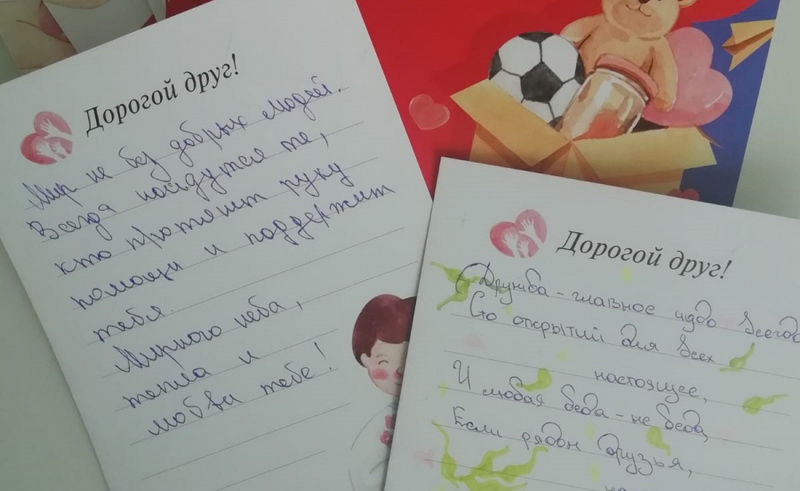 Дорогой друг!
Мир не без добрых людей.
Всегда найдутся те,
кто протянет руку
помощи и поддержит
тебя.
Мирного неба,
тепла и
любви тебе!
Дорогой друг!
Дружба - главное чудо всегда
Сто открытий для всех
настоящее,
И любая беда - не беда,
Если рядом друзья,